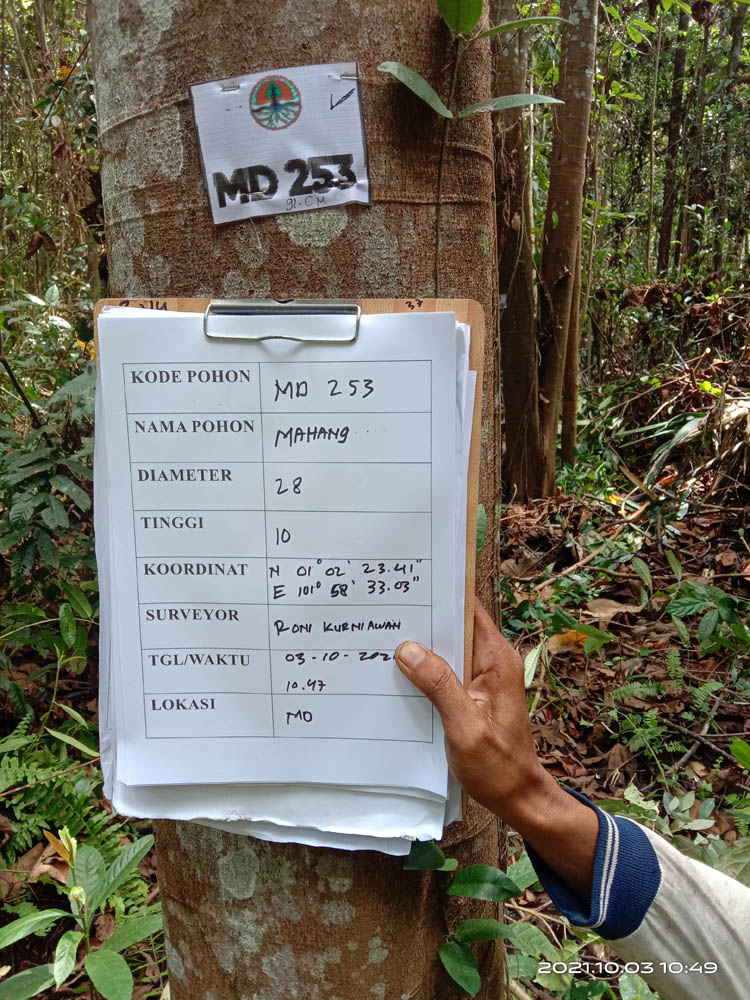 MD 253
91.CM
37
KODE POHON MD 253
NAMA POHON MAHANG
DIAMETER 28
TINGGI 10
KOORDINAT N 01° 02' 23.41"
E 101° 58' 33.03"
SURVEYOR RONI KURNIAWAN
TGL/WAKTU 03-10-202
10.47
LOKASI MD
2021.10.03 10:49